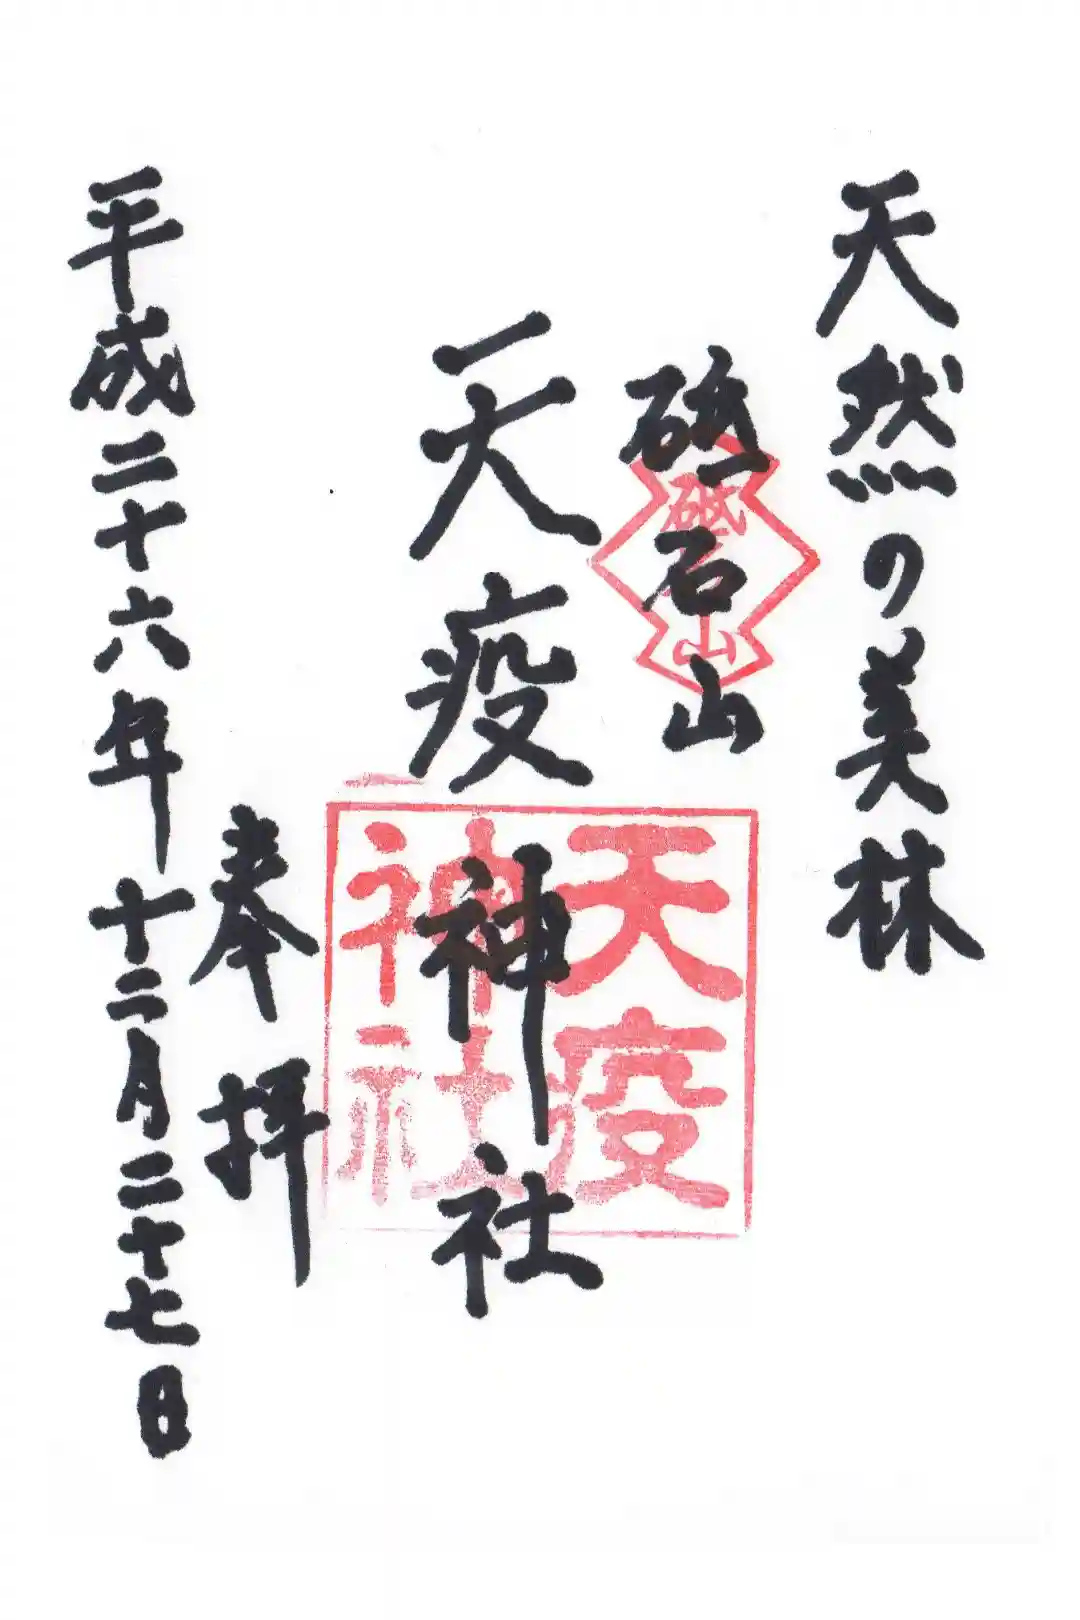 天然の美林
砥石山
砥石山
天疫神社
天疫
神社
奉拝
平成二十六年十二月二十七日